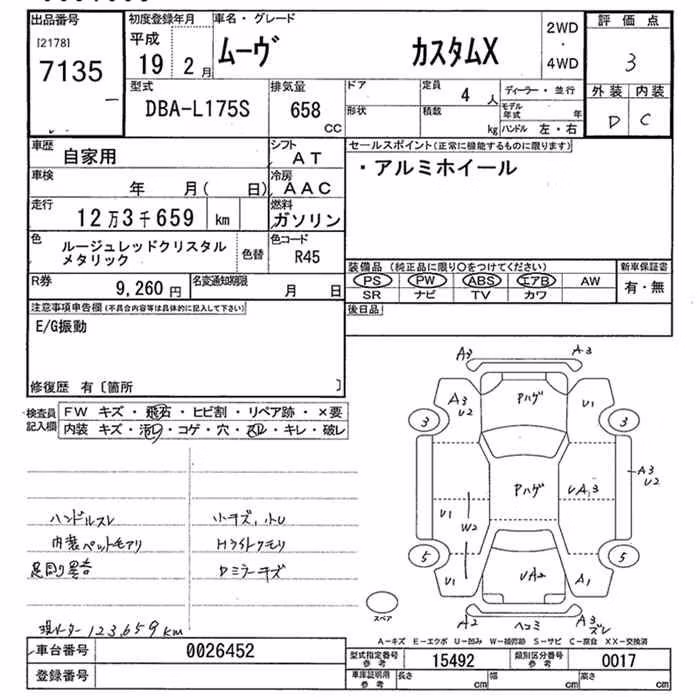 出品番号 初度登録年月 車名・グレード 評価点
[2178] 平成 2WD
7135 19年 2月 ムーヴ カスタムX ・ 3
4WD
型式 排気量 ドア 定員 4人 ディーラー・並行 外装 内装
DBA-L175S 658 cc 形状 積数 kg モデル年式 年 D C
ハンドル 左・右
車歴 自家用 シフト AT セールスポイント(正常に機能するものに限ります)
車検 年 月( 日) 冷房 AAC ・アルミホイール
走行 12万3千659 km 燃料 ガソリン
色 ルージュレッドクリスタル 色替 色コード
メタリック R45
装備品(純正品に限り○をつけてください) 新車保証書
R券 9,260円 名変通知期限 月 日 PS PW ABS エアB AW 有・無
SR ナビ TV カワ
注意事項申告欄(不具合内容等は具体的に記入して下さい) 後日品
E/G振動
修復歴 有〔箇所 〕
検査員 FW キズ・飛石・ヒビ割・リペア跡・×要
記入欄 内装 キズ・汚レ・コゲ・穴・スレ・キレ・破レ
A3 A3
A3 U2 Pハゲ U1
3 3
Pハゲ UA3 A3 U2
U1 W2
5 5
U1 UA2 A1
A2 ヘコミ A3 ズレ
スペア
ハンドルスレ 小キズ、小U
内装ペットモアリ Hライトクモリ
足廻り異音 Dミラーキズ
現メーター 123,659km
A-キズ E-エクボ U-凹み W-補修跡 S-サビ C-腐食 XX-交換済
車台番号 0026452 型式指定番号 参考 15492 類別区分番号 参考 0017
登録番号 車庫証明用 参考 長さ cm 幅 cm 高さ cm